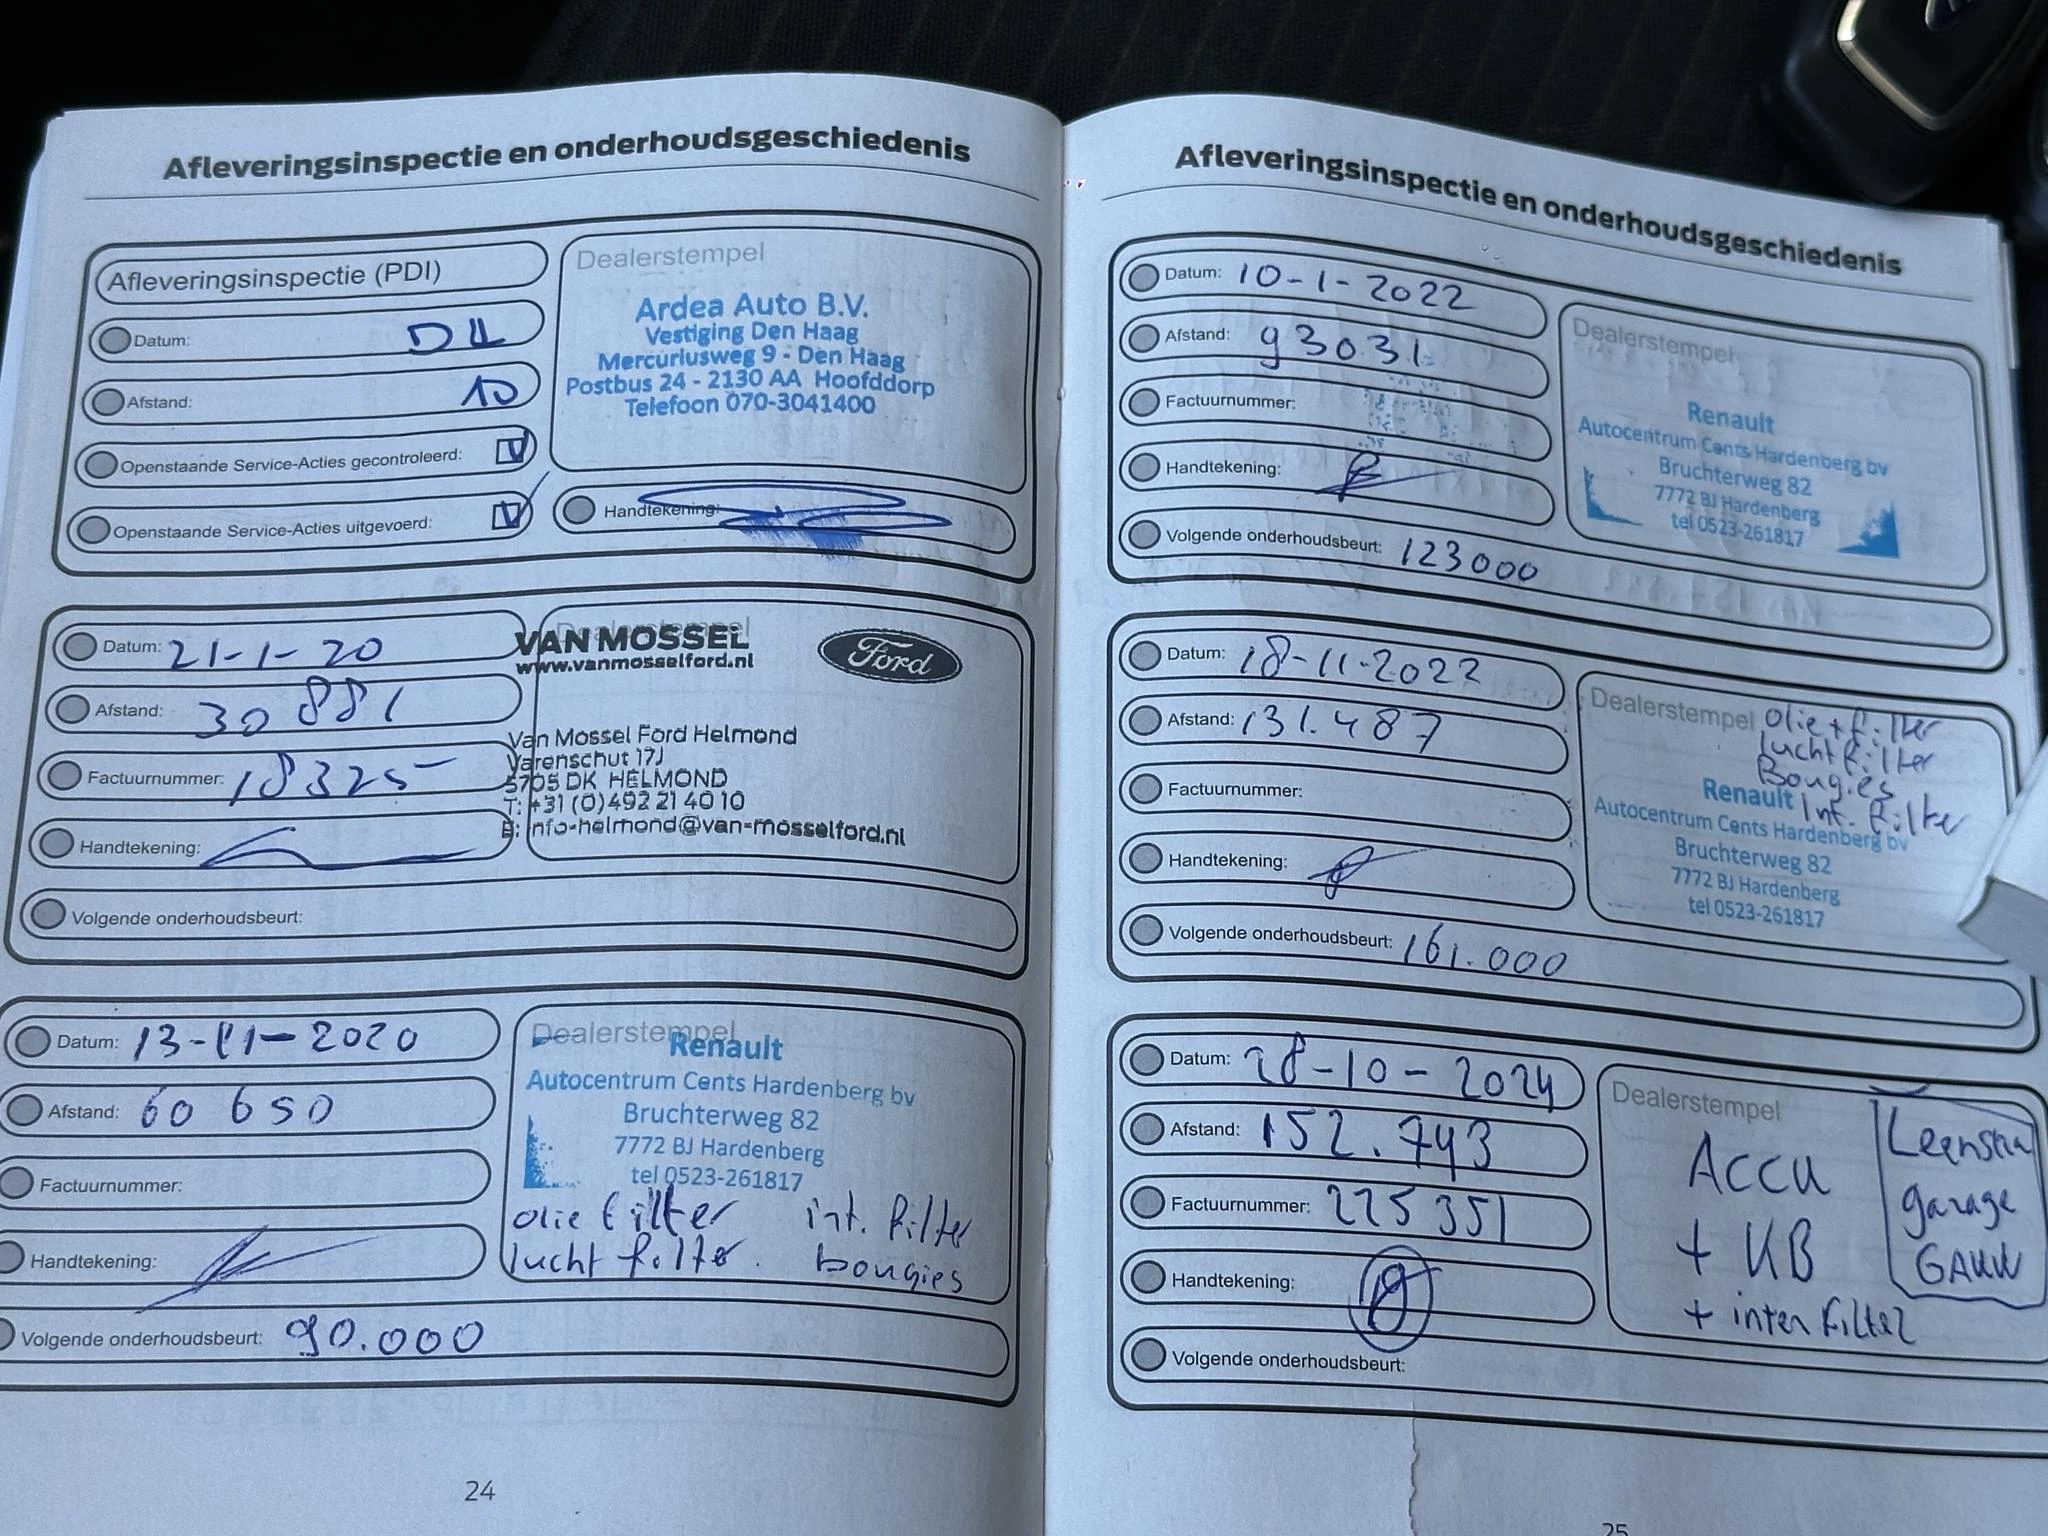 Afleveringsinspectie en onderhoudsgeschiedenis
Afleveringsinspectie (PDI)
Datum:
Afstand: 10
Openstaande Service-Acties gecontroleerd: V
Openstaande Service-Acties uitgevoerd: V
Dealerstempel
Ardea Auto B.V.
Vestiging Den Haag
Mercuriusweg 9 - Den Haag
Postbus 24 - 2130 AA Hoofddorp
Telefoon 070-3041400
Handtekening:
Datum: 21-1-20
Afstand: 30 881
Factuurnummer: 18325
Handtekening:
Volgende onderhoudsbeurt:
Dealerstempel
VAN MOSSEL
www.vanmosselford.nl
Ford
Van Mossel Ford Helmond
Varenschut 17J
5705 DK HELMOND
T: +31 (0)492 21 40 10
E: info-helmond@van-mosselford.nl
Datum: 13-11-2020
Afstand: 60 650
Factuurnummer:
Handtekening:
Volgende onderhoudsbeurt: 90.000
Dealerstempel
Renault
Autocentrum Cents Hardenberg bv
Bruchterweg 82
7772 BJ Hardenberg
tel 0523-261817
olie filter int. filter
lucht filter. bougies
24
Afleveringsinspectie en onderhoudsgeschiedenis
Datum: 10-1-2022
Afstand: 93031
Factuurnummer:
Handtekening:
Volgende onderhoudsbeurt: 123000
Dealerstempel
Renault
Autocentrum Cents Hardenberg bv
Bruchterweg 82
7772 BJ Hardenberg
tel 0523-261817
Datum: 18-11-2022
Afstand: 131.487
Factuurnummer:
Handtekening:
Volgende onderhoudsbeurt: 161.000
Dealerstempel
olie + filter
lucht filter
Bougies
Int. filter
Renault
Autocentrum Cents Hardenberg bv
Bruchterweg 82
7772 BJ Hardenberg
tel 0523-261817
Datum: 28-10-2024
Afstand: 152.743
Factuurnummer: 225351
Handtekening:
Volgende onderhoudsbeurt:
Dealerstempel
Accu
+ KB
+ inter Filter
Leenstra
garage
25